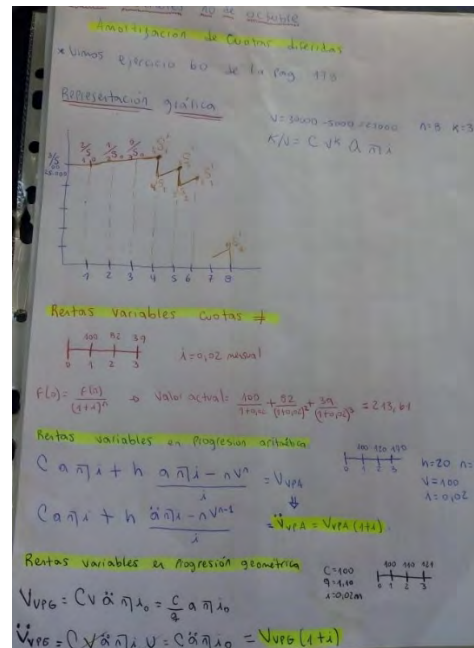 Amortizacion de Cuotas diferidas
* Vimos ejercicio 60 de la pag 178
Representación gráfica
V=30000-5000=25000 n=8 k=3
K/V = C V^k a n┐i
1 2 3 4 5 6 7 8
Rentas variables Cuotas ≠
100 92 39
0 1 2 3
i=0,02 mensual
F(0) = F(n)/(1+i)^n → Valor actual: 100/(1+0,02) + 92/(1+0,02)² + 39/(1+0,02)³ = 213,61
Rentas variables en progresion aritmética
100 120 140
0 1 2 3
h=20 n=
V=100
i=0,02
C a n┐i + h (a n┐i - nV^n)/i = V VPA
⇓
C a n┐i + h (ä n┐i - nV^n-1)/i = V̈ VPA = V VPA (1+i)
Rentas variables en progresión geométrica
C=100
q=1,10
i=0,02m
100 110 121
0 1 2 3
V VPG = C V ä n┐i₀ = C/q a n┐i₀
V̈ VPG = C V ä n┐i₀ U = C ä n┐i₀ = V VPG (1+i)